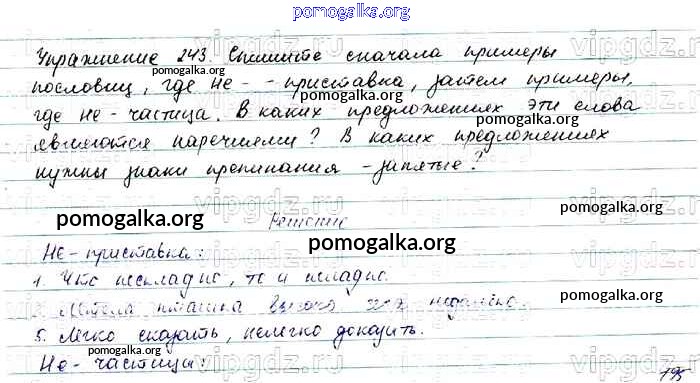 pomogalka.org
Упражнение 243. Спишите сначала примеры
пословиц, где не - - приставка, затем примеры,
где не - частица. В каких предложениях эти слова
являются наречиями? В каких предложениях
нужны знаки препинания - запятые?
Решение
Не - приставка:
1. Что нескладно, то и неладно.
2. Летела пташка высоко недалеко.
5. Легко сказать, нелегко доказать.
Не - частица:
195
pomogalka.org
pomogalka.org
pomogalka.org
pomogalka.org
pomogalka.org
pomogalka.org
pomogalka.org
pomogalka.org
pomogalka.org
pomogalka.org